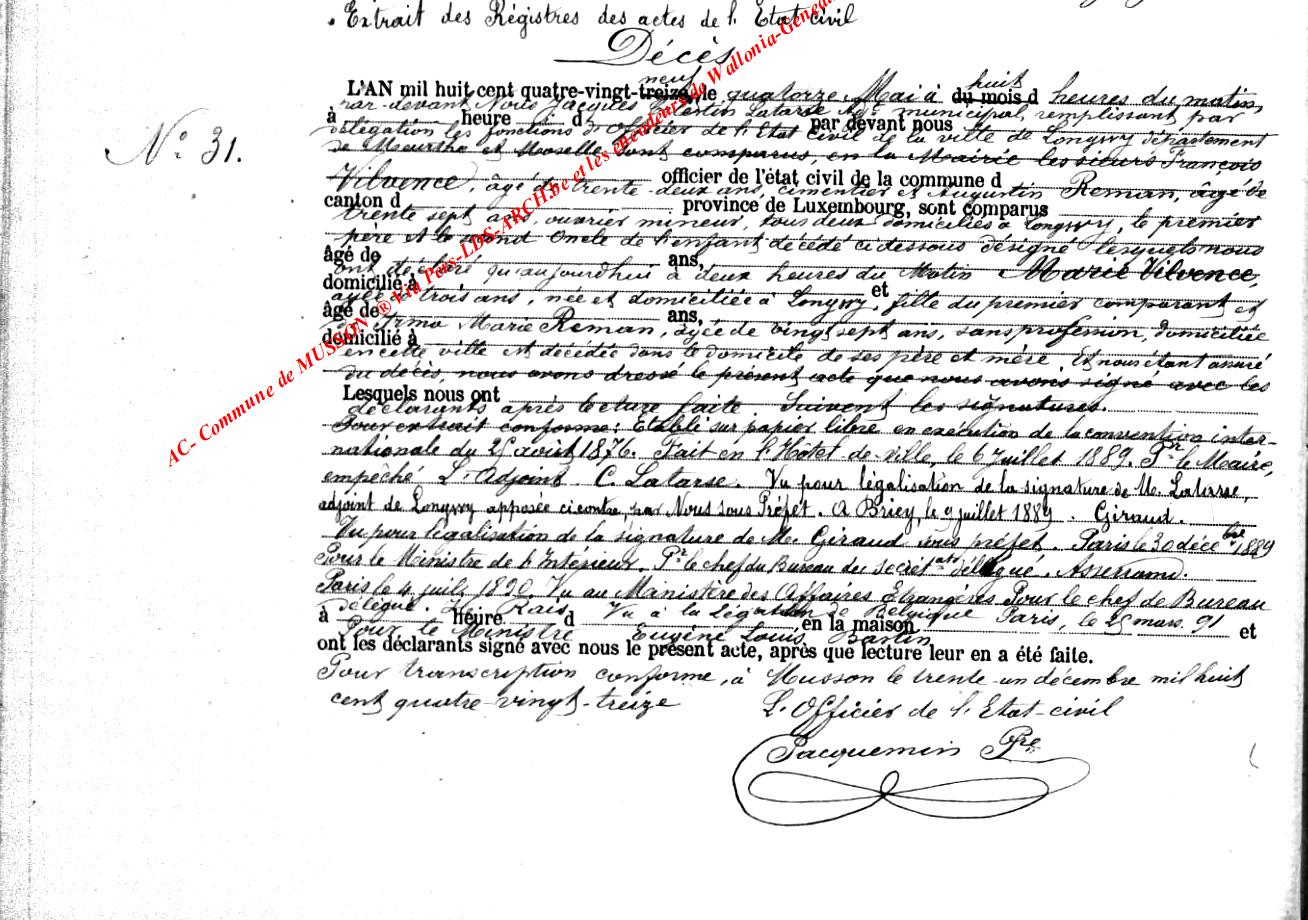 Extrait des Régistres des actes de l'Etat civil
Décès
L'AN mil huit cent quatre-vingt-treize neuf, le quatorze Mai à huit du mois d heures du matin,
par-devant Nous Jacques Latarse Agt municipal, remplissant par
à heure d par devant nous
délégation les fonctions d'Officier de l'Etat Civil de la ville de Longwy département
de Meurthe et Moselle sont comparus, en la Mairie les sieurs François
N° 31.
Vilvence, âgé de trente-deux ans, cimentier et Augustin Reman, âgé de
officier de l'état civil de la commune d
canton d province de Luxembourg, sont comparus
trente sept ans, ouvrier mineur, tous deux domiciliés à Longwy, le premier
père et le second Oncle de l'enfant décédé ci dessous désigné lesquels nous
âgé de ans,
ont déclaré qu'aujourd'hui à deux heures du Matin Marie Vilvence,
domicilié à et
âgée trois ans, née et domiciliée à Longwy, fille du premier comparant et
âgé de ans,
Irma Marie Reman, âgée de vingt sept ans, sans profession, domiciliée
domicilié à
en cette ville est décédée dans le domicile de ses père et mère. Et nous étant assuré
du décès, nous avons dressé le présent acte que nous avons signé avec les
Lesquels nous ont
déclarants après lecture faite. Suivent les signatures.
Pour extrait conforme: Etabli sur papier libre en exécution de la convention inter-
nationale du 25 août 1876. Fait en l'Hôtel-de-ville, le 6 juillet 1889. Pr le Maire,
empêché L'Adjoint C. Latarse. Vu pour légalisation de la signature de M. Latarse,
adjoint de Longwy apposée ci contre, par Nous sous Préfet. A Briey, le 9 juillet 1889. Giraud.
Vu pour légalisation de la signature de Mr Giraud sous préfet. Paris le 30 décebre 1889
Pour le Ministre de l'Intérieur. Pr le chef du Bureau du secrétat délégué.
Paris le 4 1890. Vu au Ministère des Affaires Etrangères Pour le chef de Bureau
délégué. Vu à la Légation de Belgique Paris, le 25 mars 91
à heure d en la maison et
Pour le Ministre Eugène Louis
ont les déclarants signé avec nous le présent acte, après que lecture leur en a été faite.
Pour transcription conforme, à Musson le trente-un décembre mil huit
cent quatre-vingt-treize
L'Officier de l'Etat-civil
Jacquemin Pre
AC- Commune de MUSSON ® Via Pers-LDS-ARCH.be et les encodeurs de Wallonia-Genea